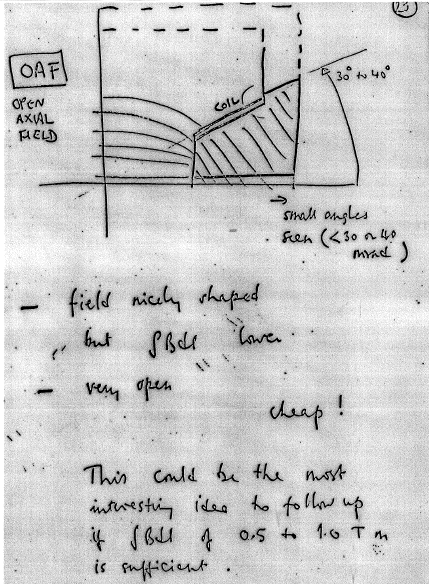 23
OAF
OPEN
AXIAL
FIELD
COIL
30° to 40°
small angles
seen (<30 or 40
mrad)
— field nicely shaped
but ∫Bdl lower
— very open
cheap !
This could be the most
interesting idea to follow up
if ∫Bdl of 0.5 to 1.0 T m
is sufficient .